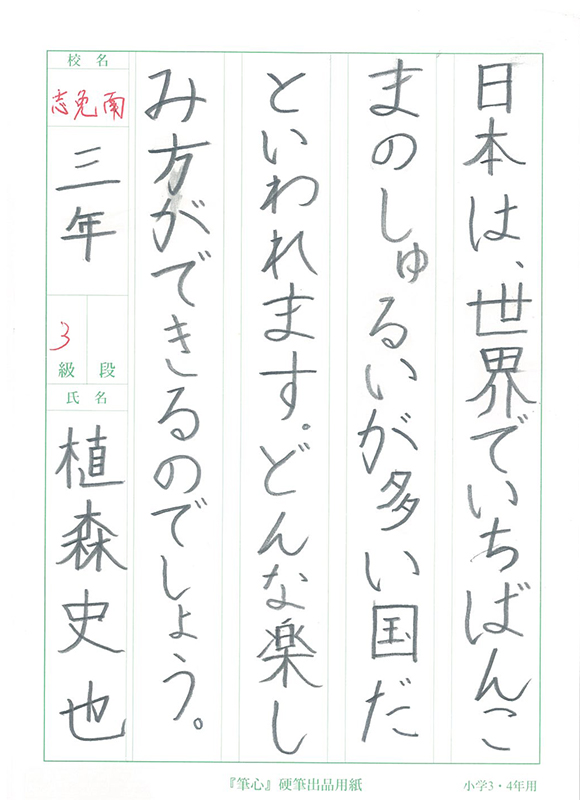 日本は、世界でいちばんこ
まのしゅるいが多い国だ
といわれます。どんな楽し
み方ができるのでしょう。
校名
志免南
三年
3
級 段
氏名
植森史也
『筆心』硬筆出品用紙
小学3・4年用